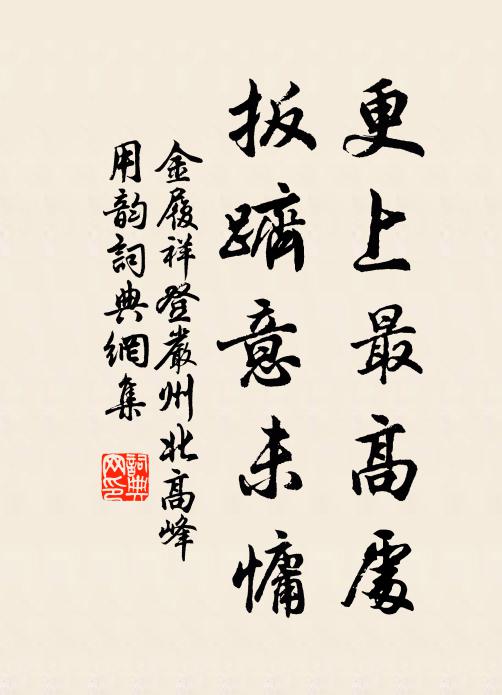 更上最高處
扳躋意未慵
金履祥登嚴州北高峰
用韵詞典網集
詞典网印